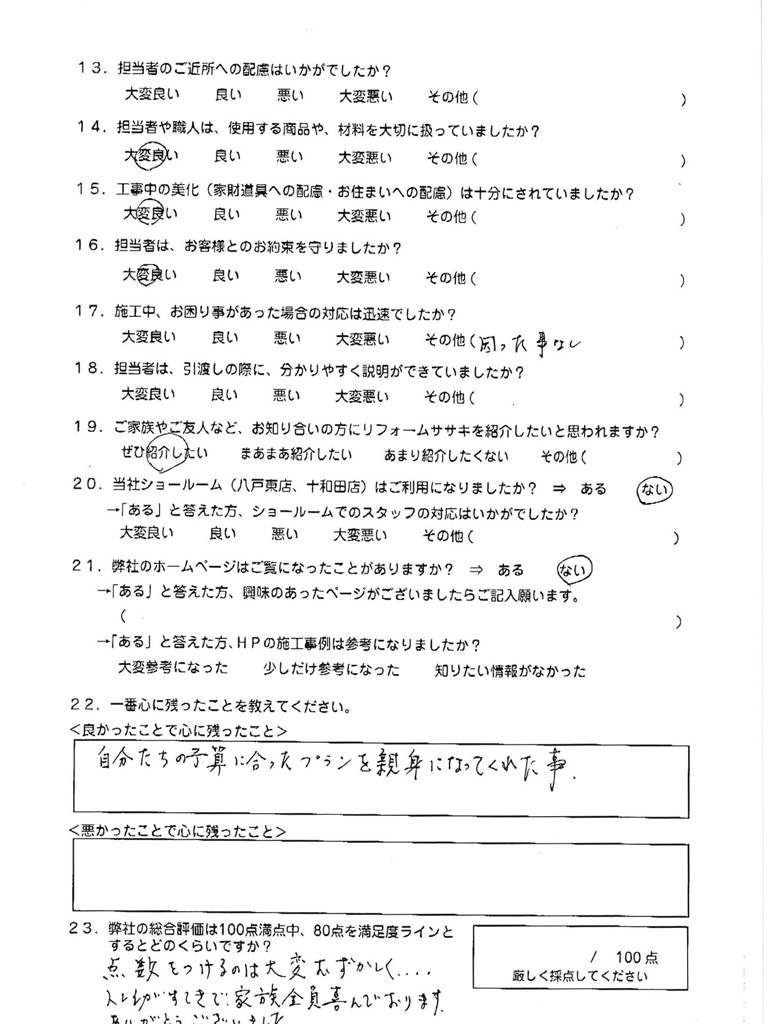 13．担当者のご近所への配慮はいかがでしたか？
大変良い　良い　悪い　大変悪い　その他（　）
14．担当者や職人は、使用する商品や、材料を大切に扱っていましたか？
大変良い　良い　悪い　大変悪い　その他（　）
15．工事中の美化（家財道具への配慮・お住まいへの配慮）は十分にされていましたか？
大変良い　良い　悪い　大変悪い　その他（　）
16．担当者は、お客様とのお約束を守りましたか？
大変良い　良い　悪い　大変悪い　その他（　）
17．施工中、お困り事があった場合の対応は迅速でしたか？
大変良い　良い　悪い　大変悪い　その他（困った事なし　）
18．担当者は、引渡しの際に、分かりやすく説明ができていましたか？
大変良い　良い　悪い　大変悪い　その他（　）
19．ご家族やご友人など、お知り合いの方にリフォームササキを紹介したいと思われますか？
ぜひ紹介したい　まあまあ紹介したい　あまり紹介したくない　その他（　）
20．当社ショールーム（八戸東店、十和田店）はご利用になりましたか？　⇒　ある　ない
→「ある」と答えた方、ショールームでのスタッフの対応はいかがでしたか？
大変良い　良い　悪い　大変悪い　その他（　）
21．弊社のホームページはご覧になったことがありますか？　⇒　ある　ない
→「ある」と答えた方、興味のあったページがございましたらご記入願います。
（　）
→「ある」と答えた方、ＨＰの施工事例は参考になりましたか？
大変参考になった　少しだけ参考になった　知りたい情報がなかった
22．一番心に残ったことを教えてください。
＜良かったことで心に残ったこと＞
自分たちの予算に合ったプランを親身になってくれた事．
＜悪かったことで心に残ったこと＞
23．弊社の総合評価は100点満点中、80点を満足度ラインと
するとどのくらいですか？
/ 100点
厳しく採点してください
点数をつけるのは大変むずかしく‥‥
トイレがすてきで、家族全員喜んでおります。
ありがとうございました